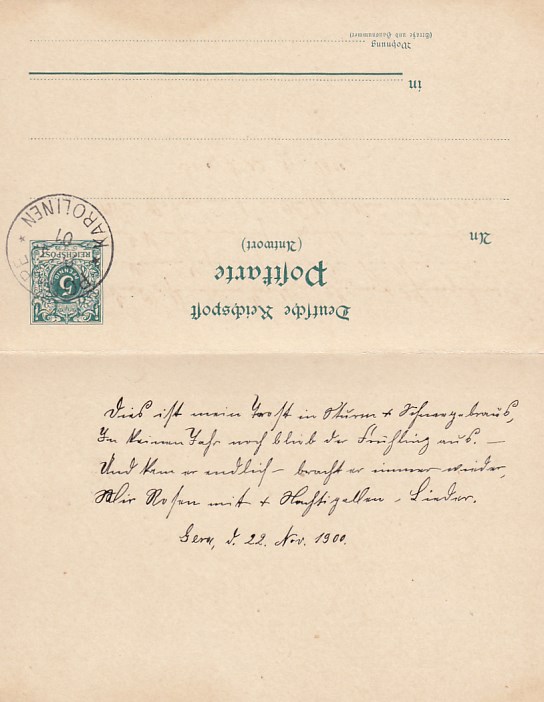 Wohnung
(Straße und Hausnummer)
in
An
(Antwort)
Postkarte
Deutsche Reichspost
KAROLINEN
01
REICHSPOST
5
PFENNIG
Dies ist mein Trost in Sturm & Schneegebraus,
In keinem Jahr noch blieb der Frühling aus. —
Und kam er endlich – bracht er immer wieder,
Mir Rosen mit & Nachtigallen-Lieder.
Gera, d. 22. Nov. 1900.